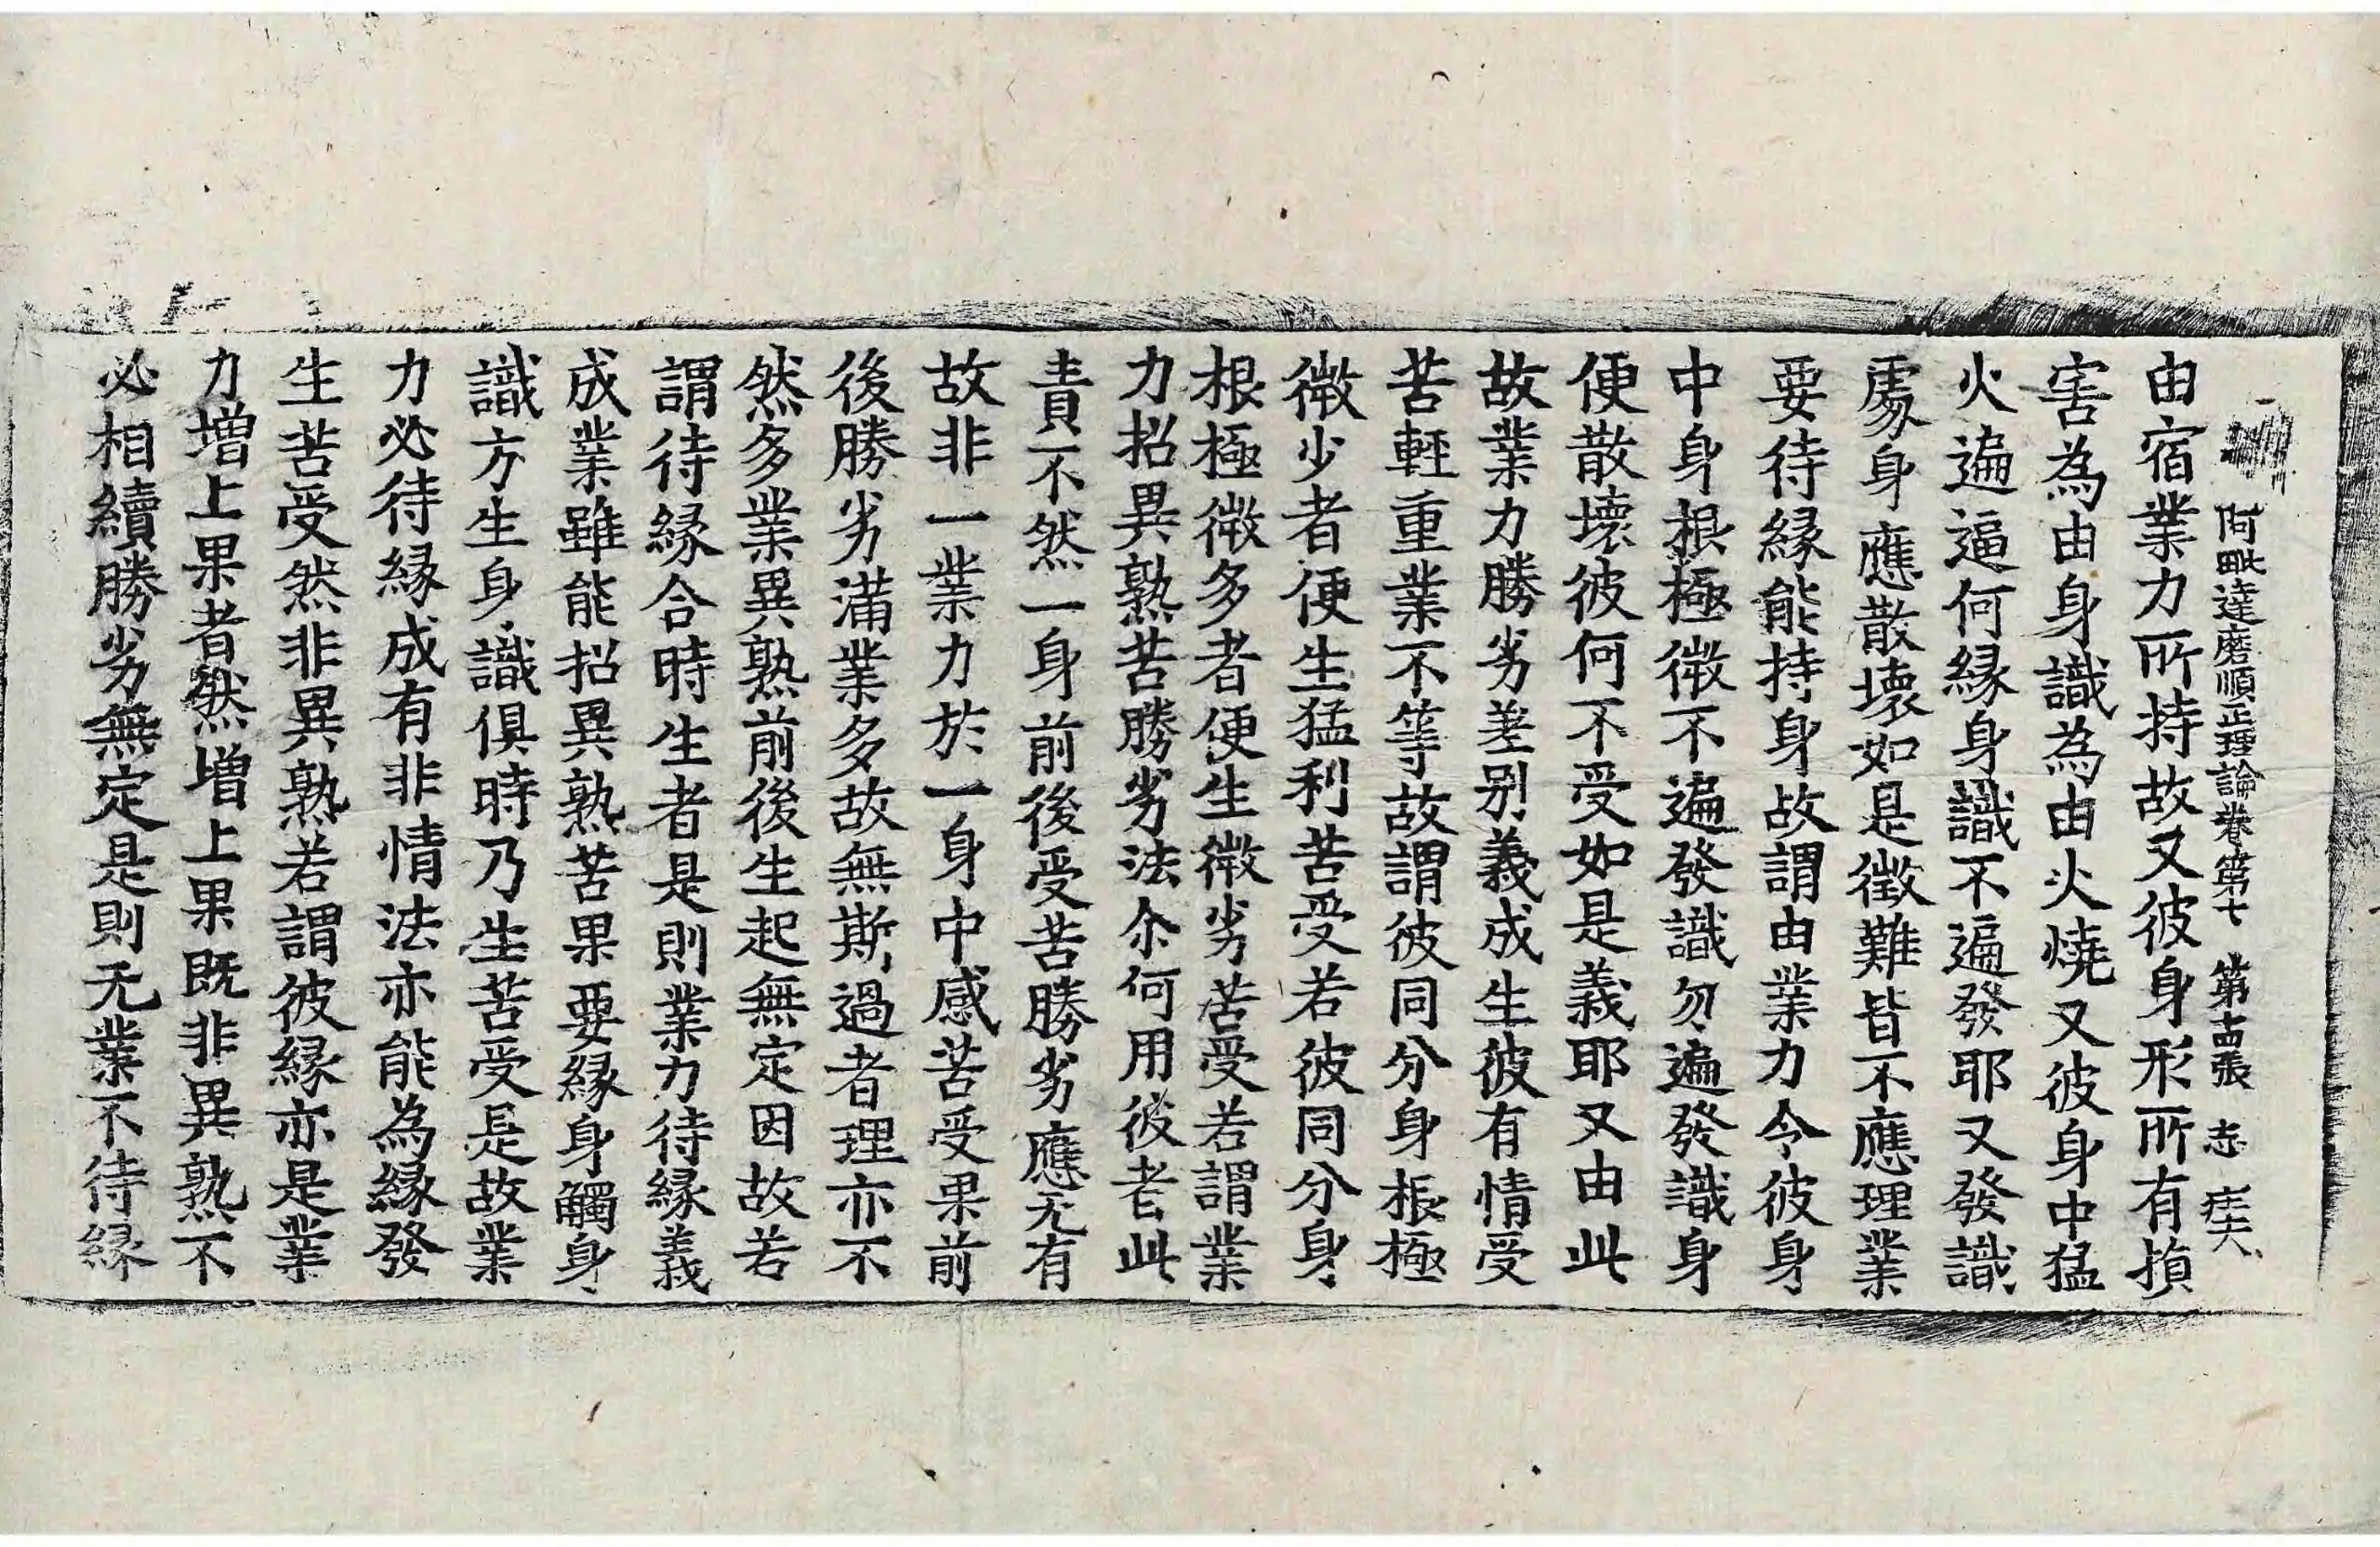 阿毗達磨順正理論卷第七 第古張 志
由宿業力所持故又彼身形所有損
害為由身識為由火燒又彼身中猛
火遍逼何緣身識不遍發耶又發識
處身應散壞如是徵難皆不應理業
要待緣能持身故謂由業力令彼身
中身根極微不遍發識勿遍發識身
便散壞彼何不受如是義耶又由此
故業力勝劣差别義成生彼有情受
苦輕重業不等故謂彼同分身根極
微少者便生猛利苦受若彼同分身
根極微多者便生微劣苦受若謂業
力招異熟苦勝劣法尒何用彼者此
責不然一身前後受苦勝劣應无有
故非一業力於一身中感苦受果前
後勝劣滿業多故無斯過者理亦不
然多業異熟前後生起無定因故若
謂待緣合時生者是則業力待緣義
成業雖能招異熟苦果要緣身觸身
識方生身識俱時乃生苦受是故業
力必待緣成有非情法亦能為緣發
生苦受然非異熟若謂彼緣亦是業
力增上果者然增上果既非異熟不
必相續勝劣無定是則无業不待緣